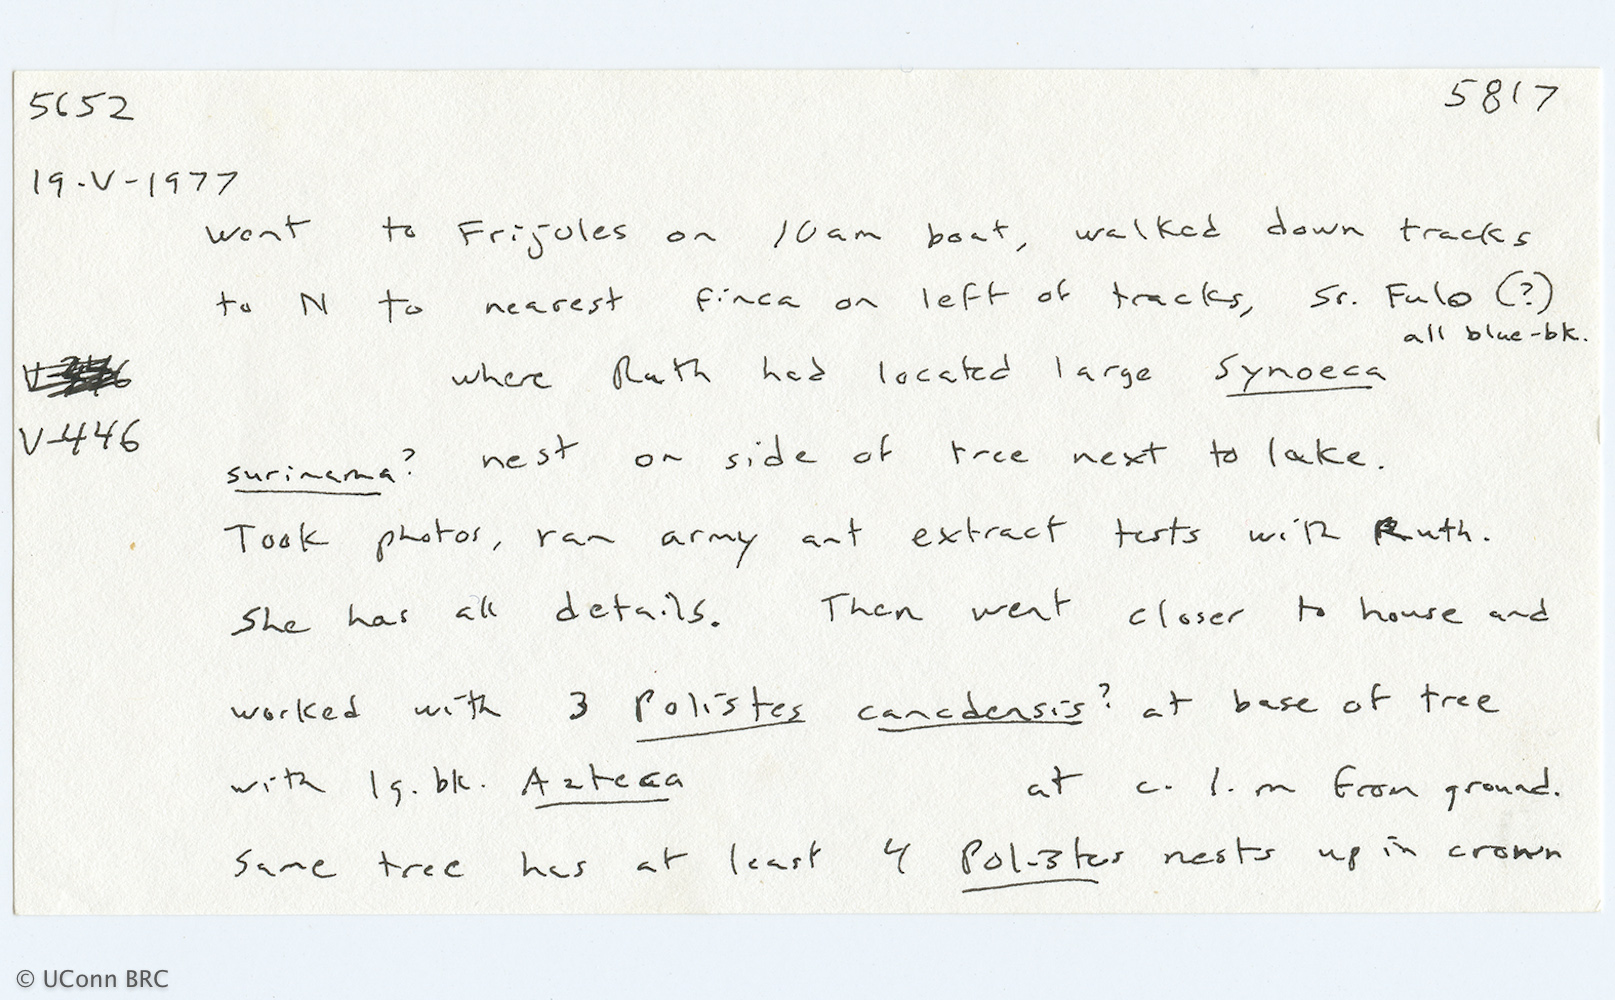 5652 5817
19-V-1977
went to Frijoles on 10am boat, walked down tracks
to N to nearest finca on left of tracks, Sr. Fulo (?)
all blue-bk.
where Ruth had located large Synoeca
V-446
surinama? nest on side of tree next to lake.
Took photos, ran army ant extract tests with Ruth.
She has all details. Then went closer to house and
worked with 3 Polistes canadensis? at base of tree
with lg. bk. Azteca at c. 1. m from ground.
Same tree has at least 4 Polistes nests up in crown
© UConn BRC